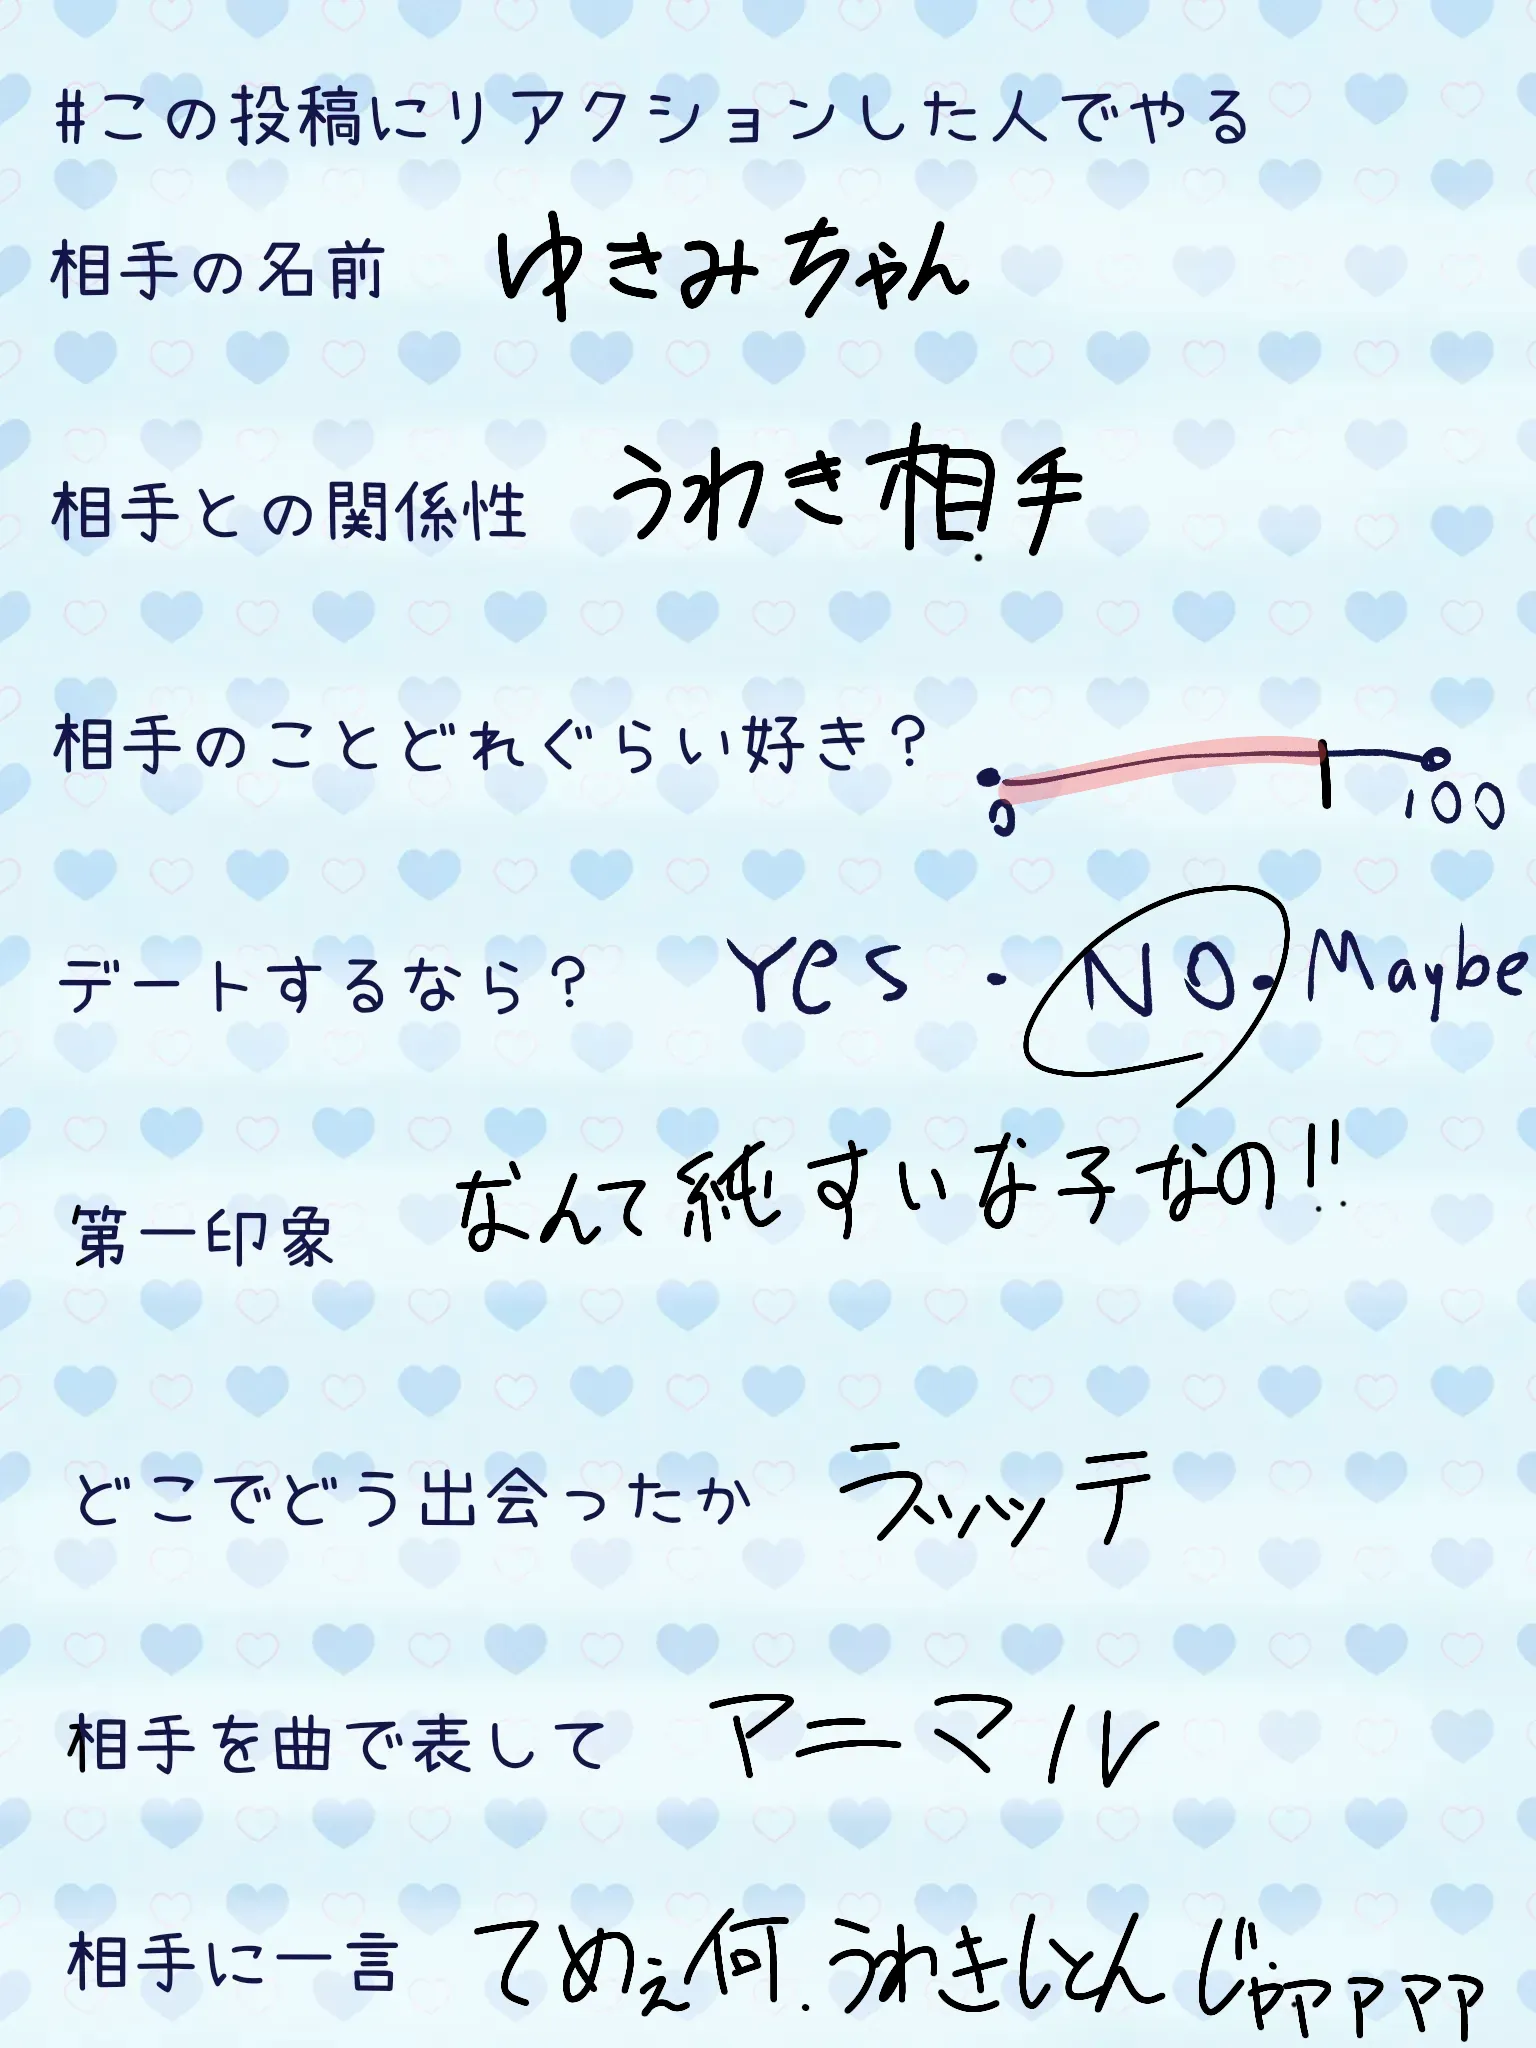 #この投稿にリアクションした人でやる
相手の名前 ゆきみちゃん
相手との関係性 うわき相手
相手のことどれぐらい好き？
0 100
デートするなら？ Yes・NO・Maybe
第一印象 なんて純すいな子なの!!
どこでどう出会ったか ラッッテ
相手を曲で表して アニマル
相手に一言 てめぇ何.うわきしとんじゃアアアア